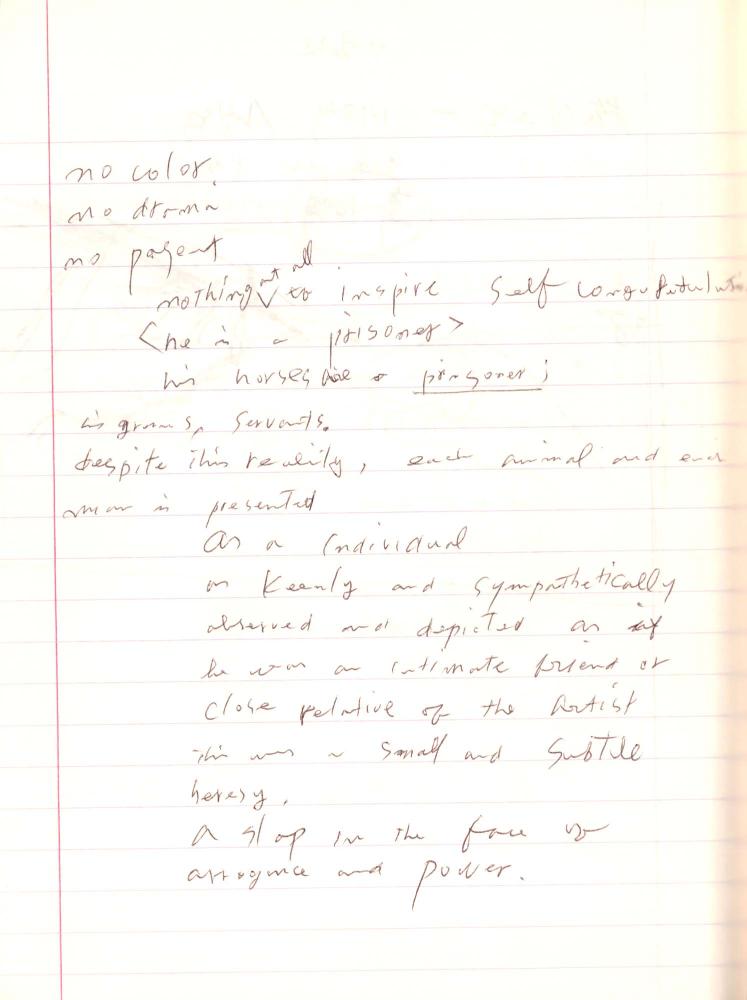 no color.
no drama
no pagent
nothing at all to inspire self
<he is a prisoner>
his horses are a prisoner;
his grooms, servants.
despite this reality, each animal and each
man is presented
as a individual
as keenly and sympathetically
observed and depicted as if
he was an intimate friend or
close relative of the Artist
this was a small and subtile
heresy.
a slap in the face of
arrogance and power.